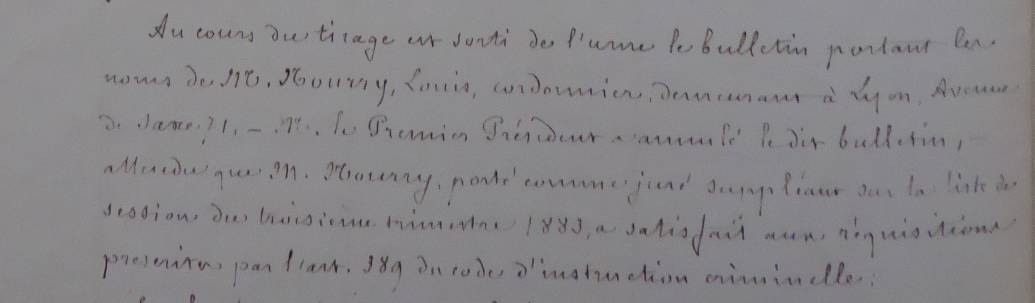 Au cours du tirage est sorti de l'urne le bulletin portant les
noms de M. Mourry, Louis, cordonnier, demeurant à Lyon, Avenue
de Saxe, 71, – M. le Premier Président a annulé le dit bulletin,
attendu que M. Mourry, porté comme juré suppléant sur la liste de
session du troisième trimestre 1883, a satisfait aux réquisitions
prescrites par l'art. 389 du code d'instruction criminelle.